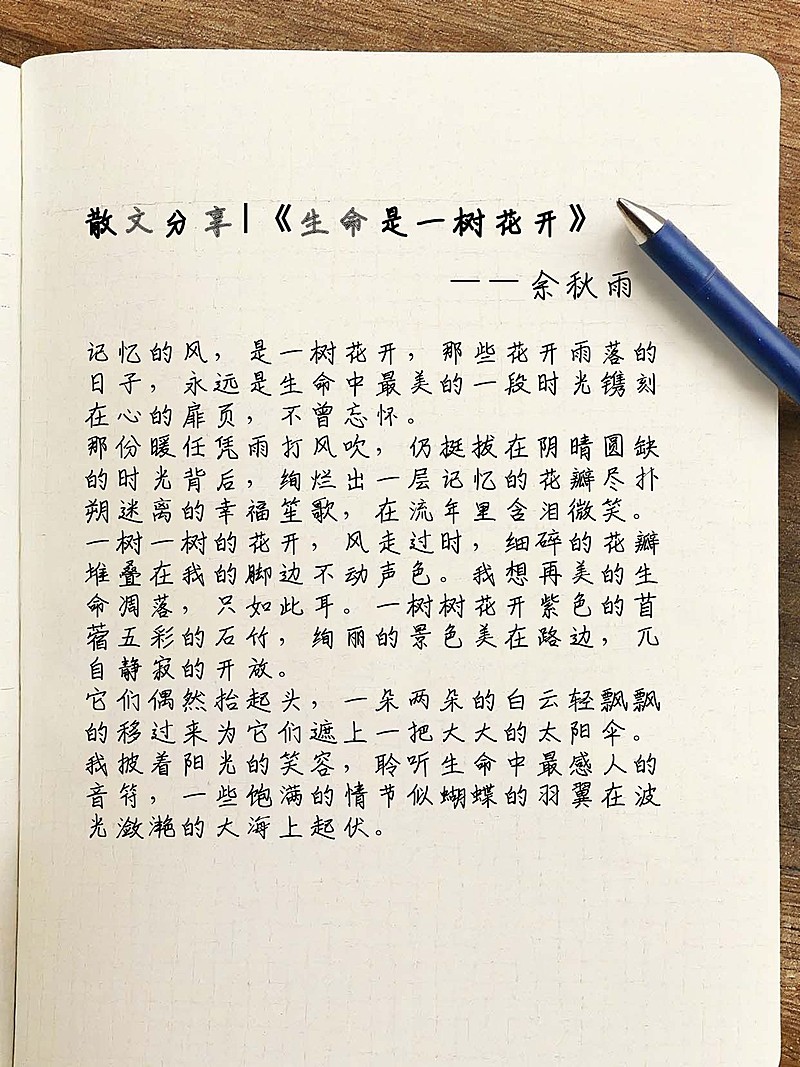 散文分享|《生命是一树花开》
——余秋雨
记忆的风，是一树花开，那些花开雨落的
日子，永远是生命中最美的一段时光镌刻
在心的扉页，不曾忘怀。
那份暖任凭雨打风吹，仍挺拔在阴晴圆缺
的时光背后，绚烂出一层记忆的花瓣尽扑
朔迷离的幸福笙歌，在流年里含泪微笑。
一树一树的花开，风走过时，细碎的花瓣
堆叠在我的脚边不动声色。我想再美的生
命凋落，只如此耳。一树树花开紫色的苜
蓿五彩的石竹，绚丽的景色美在路边，兀
自静寂的开放。
它们偶然抬起头，一朵两朵的白云轻飘飘
的移过来为它们遮上一把大大的太阳伞。
我披着阳光的笑容，聆听生命中最感人的
音符，一些饱满的情节似蝴蝶的羽翼在波
光潋滟的大海上起伏。